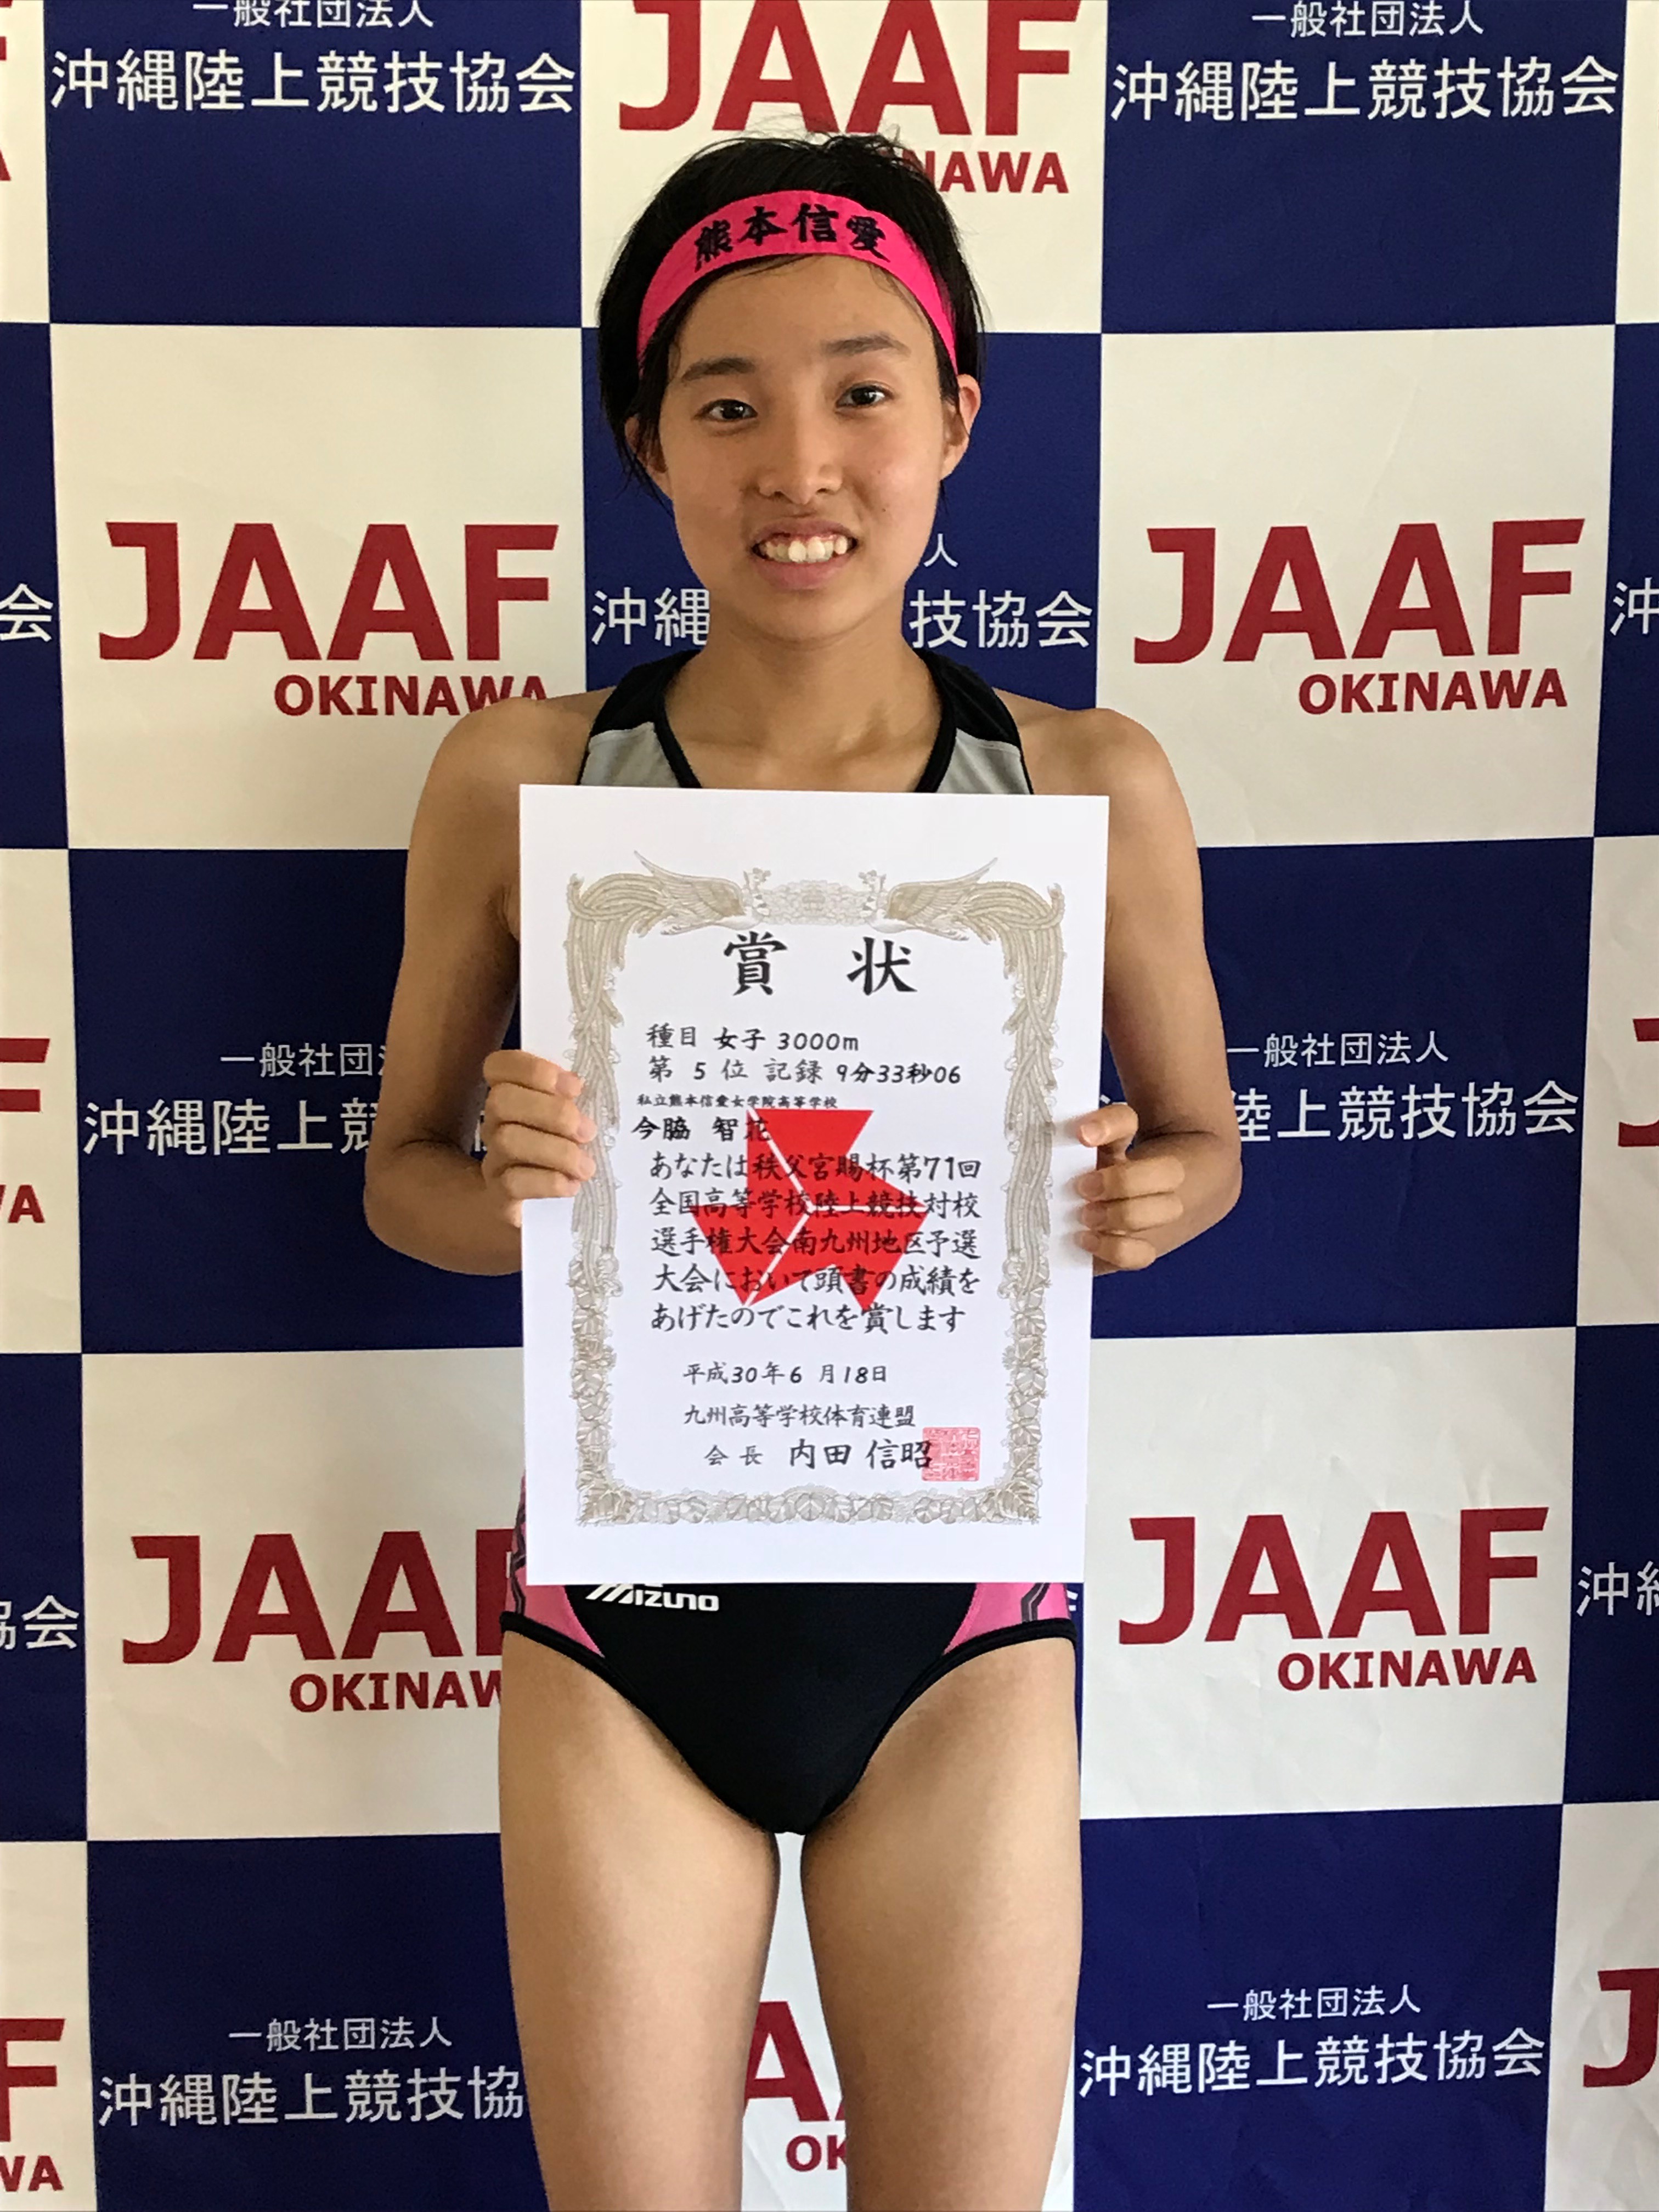 一般社団法人
沖縄陸上競技協会
JAAF
OKINAWA
一般社団法人
沖縄陸上競技協会
熊本信愛
JAAF
OKINAWA
人
沖縄
技協会
JAAF
OKINAWA
会
沖
賞 状
種目 女子 3000m
第 5 位 記録 9分33秒06
私立熊本信愛女学院高等学校
今脇 智花
あなたは秩父宮賜杯第71回
全国高等学校陸上競技対校
選手権大会南九州地区予選
大会において頭書の成績を
あげたのでこれを賞します
平成30年6月18日
九州高等学校体育連盟
会長 内田 信昭
一般社団法
沖縄陸上競
一般社団法人
陸上競技協会
Mizuno
JAA
OKINAW
JAAF
OKINAWA
協会
沖縄
一般社団法人
沖縄陸上競技協
一般社団法人
沖縄陸上競技協会
OK